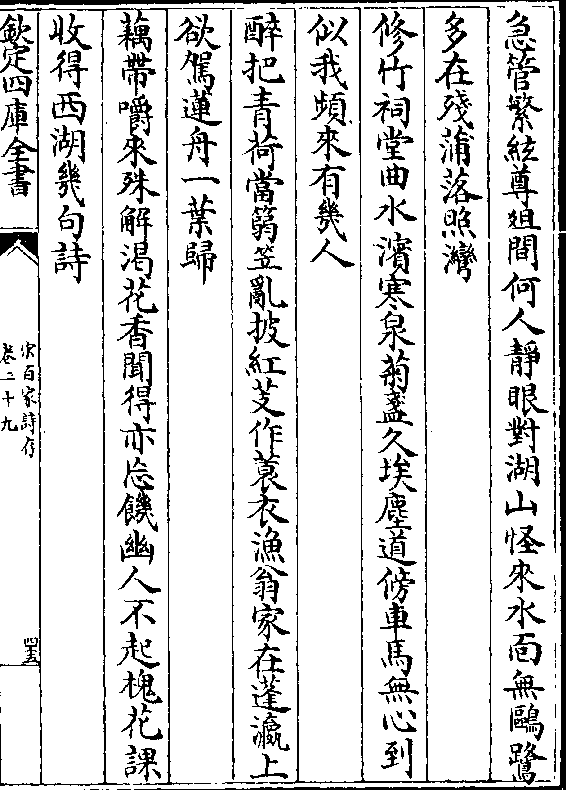 急管繁絃尊俎間何人靜眼對湖山怪來水面無鷗鷺
多在殘蒲落照灣
修竹祠堂曲水濱寒泉菊盞久埃塵道傍車馬無心到
似我頻來有幾人
醉把青荷當篛笠亂披紅芰作蓑衣漁翁家在蓬瀛上
欲駕蓮舟一葉歸
藕帶嚼來殊解渴花香聞得亦忘饑幽人不起槐花課
收得西湖幾句詩
欽定四庫全書
宋百家詩存
卷二十九
四五